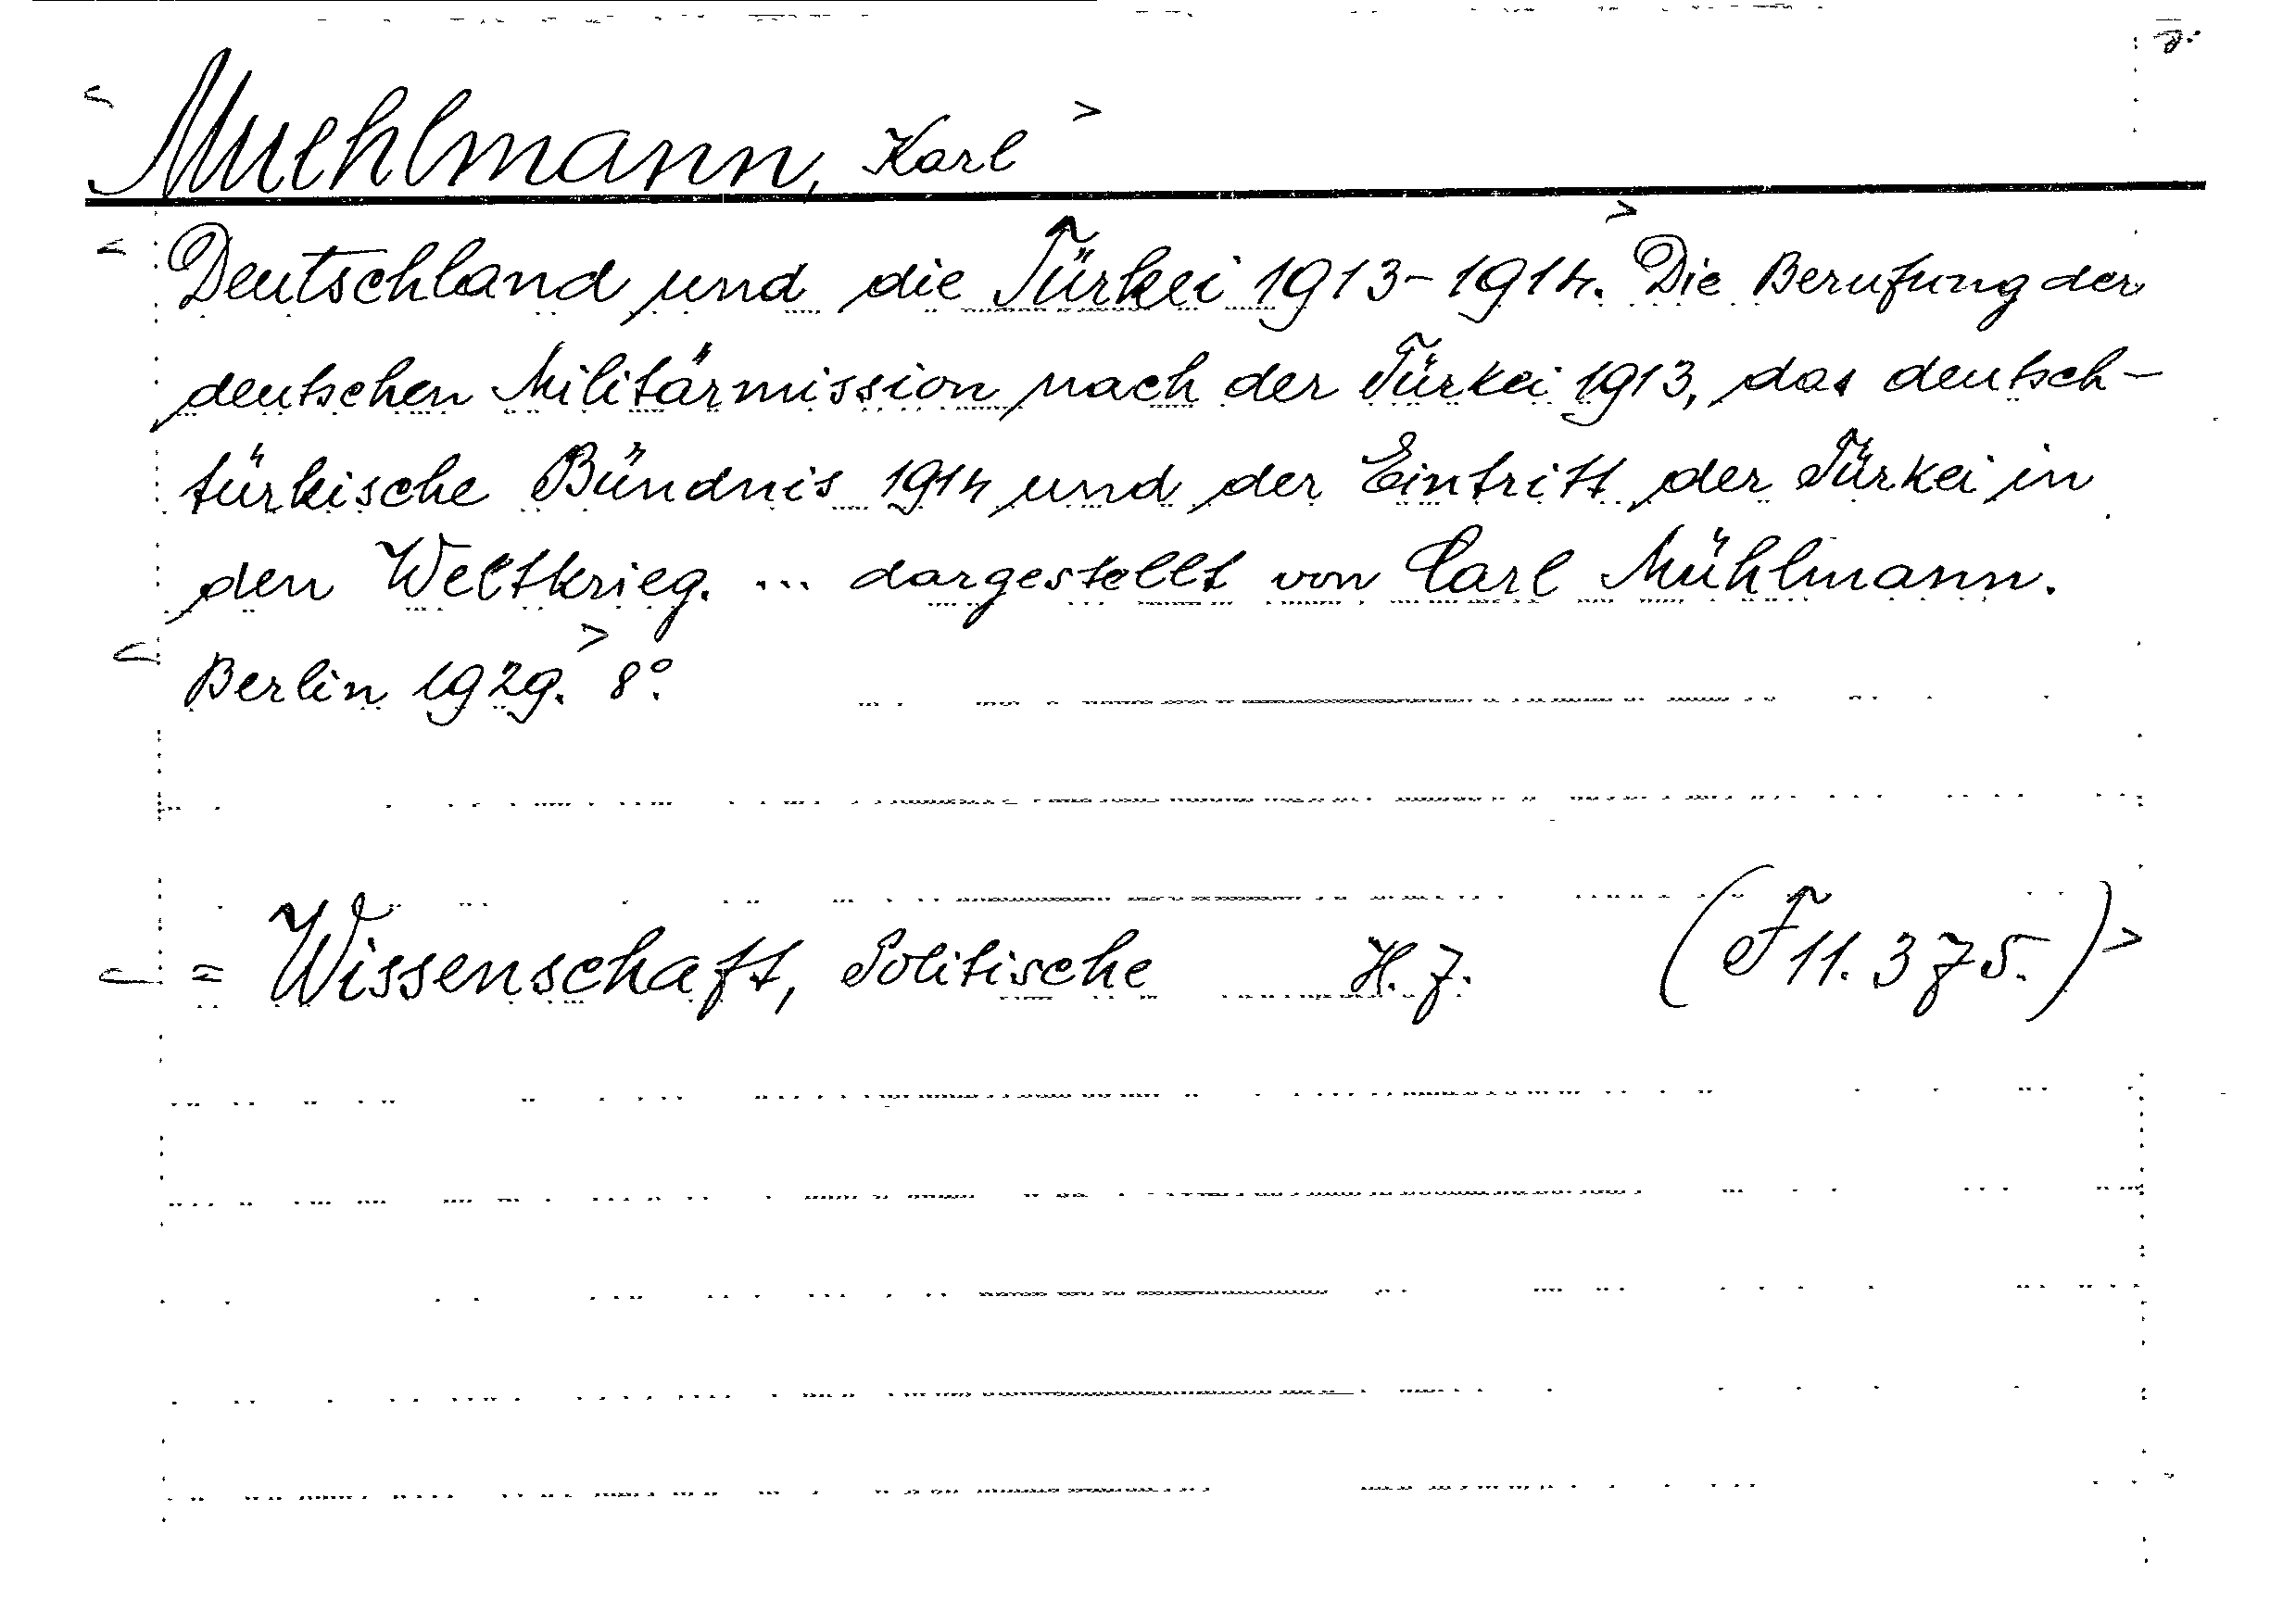 < Muehlmann, Karl >
< Deutschland und die Türkei 1913-1914. > Die Berufung der
deutschen Militärmission nach der Türkei 1913, das deutsch-
türkische Bündnis 1914 und der Eintritt der Türkei in
den Weltkrieg. ... dargestellt von Carl Mühlmann.
< Berlin 1929. > 8°.
< = Wissenschaft, Politische H. 7. (F 11. 375.) >